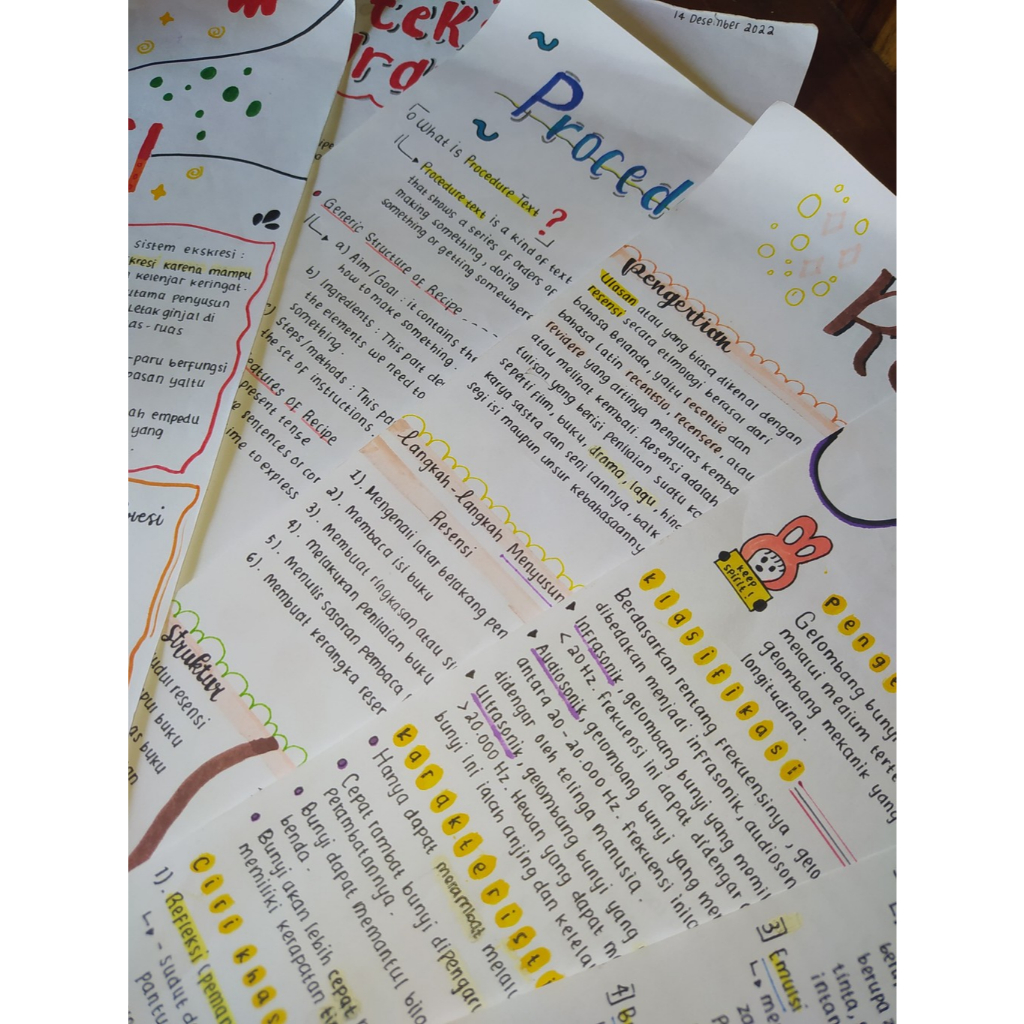 14 Desember 2022
Proced
What is Procedure Text ?
Procedure text is a kind of text
that shows a series of orders of
making something, doing
something or getting somewhere
Generic Structure of Recipe
a) Aim/Goal : it contains
how to make something.
b) Ingredients : This part
the elements we need to
something.
Steps/methods : This
the set of instructions,
of Recipe
present tense
sentences or
to express
sistem ekskresi :
karena mampu
kelenjar keringat.
penyusun
Letak ginjal di
ruas
-paru berfungsi
yaitu
empedu
yang
pengertian
Ulasan atau yang biasa dikenal dengan
resensi secara etimologi berasal dari
bahasa Belanda, yaitu recentie dan
bahasa Latin recentsio, recensere, atau
revidere yang artinya mengulas kemba
atau melihat kembali. Resensi adalah
tulisan yang berisi penilaian suatu ka
seperti film, buku, drama, lagu, hing
karya sastra dan seni lainnya, baik
segi isi maupun unsur kebahasaanny
langkah-langkah Menyusun
Resensi
1). Mengenali latar belakang pen
2). Membaca isi buku
3). Membuat ringkasan atau si
4). Melakukan penilaian buku
5). Menulis sasaran pembaca
6). Membuat kerangka reser
struktur
resensi
buku
buku
keep
spirit!
Penge
Gelombang buny
melalui medium terte
gelombang mekanik yang
longitudinal.
klasifikasi
Berdasarkan rentang frekuensinya, gelo
dibedakan menjadi infrasonik, audioson
Infrasonik, gelombang bunyi yang memil
< 20 Hz. frekuensi ini dapat didengar
Audiosonik, gelombang bunyi yang me
antara 20 - 20.000 Hz. frekuensi inila
didengar oleh telinga manusia.
Ultrasonik, gelombang bunyi yang
> 20.000 Hz. Hewan yang dapat m
bunyi ini ialah anjing dan kelela
karakteristi
Hanya dapat merambat melalu
Cepat rambat bunyi dipengar
Perambatannya.
Bunyi dapat memantul bila
benda.
Bunyi akan lebih cepat
memiliki kerapatan
Ciri khas
1). Refleksi (peman
- sudut d
pantu
3 Emulsi
me
4
berupa
tinta,